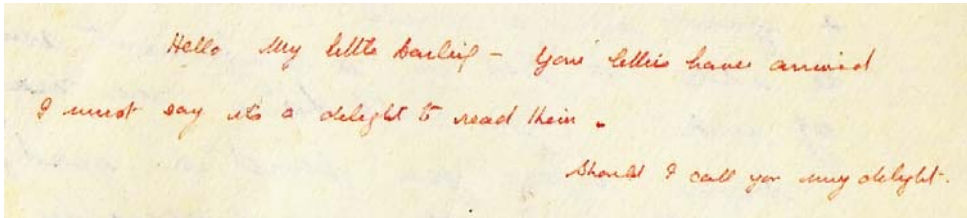 Hello My little Darling - Your letters have arrived
I must say its a delight to read them.
Should I call you my delight.